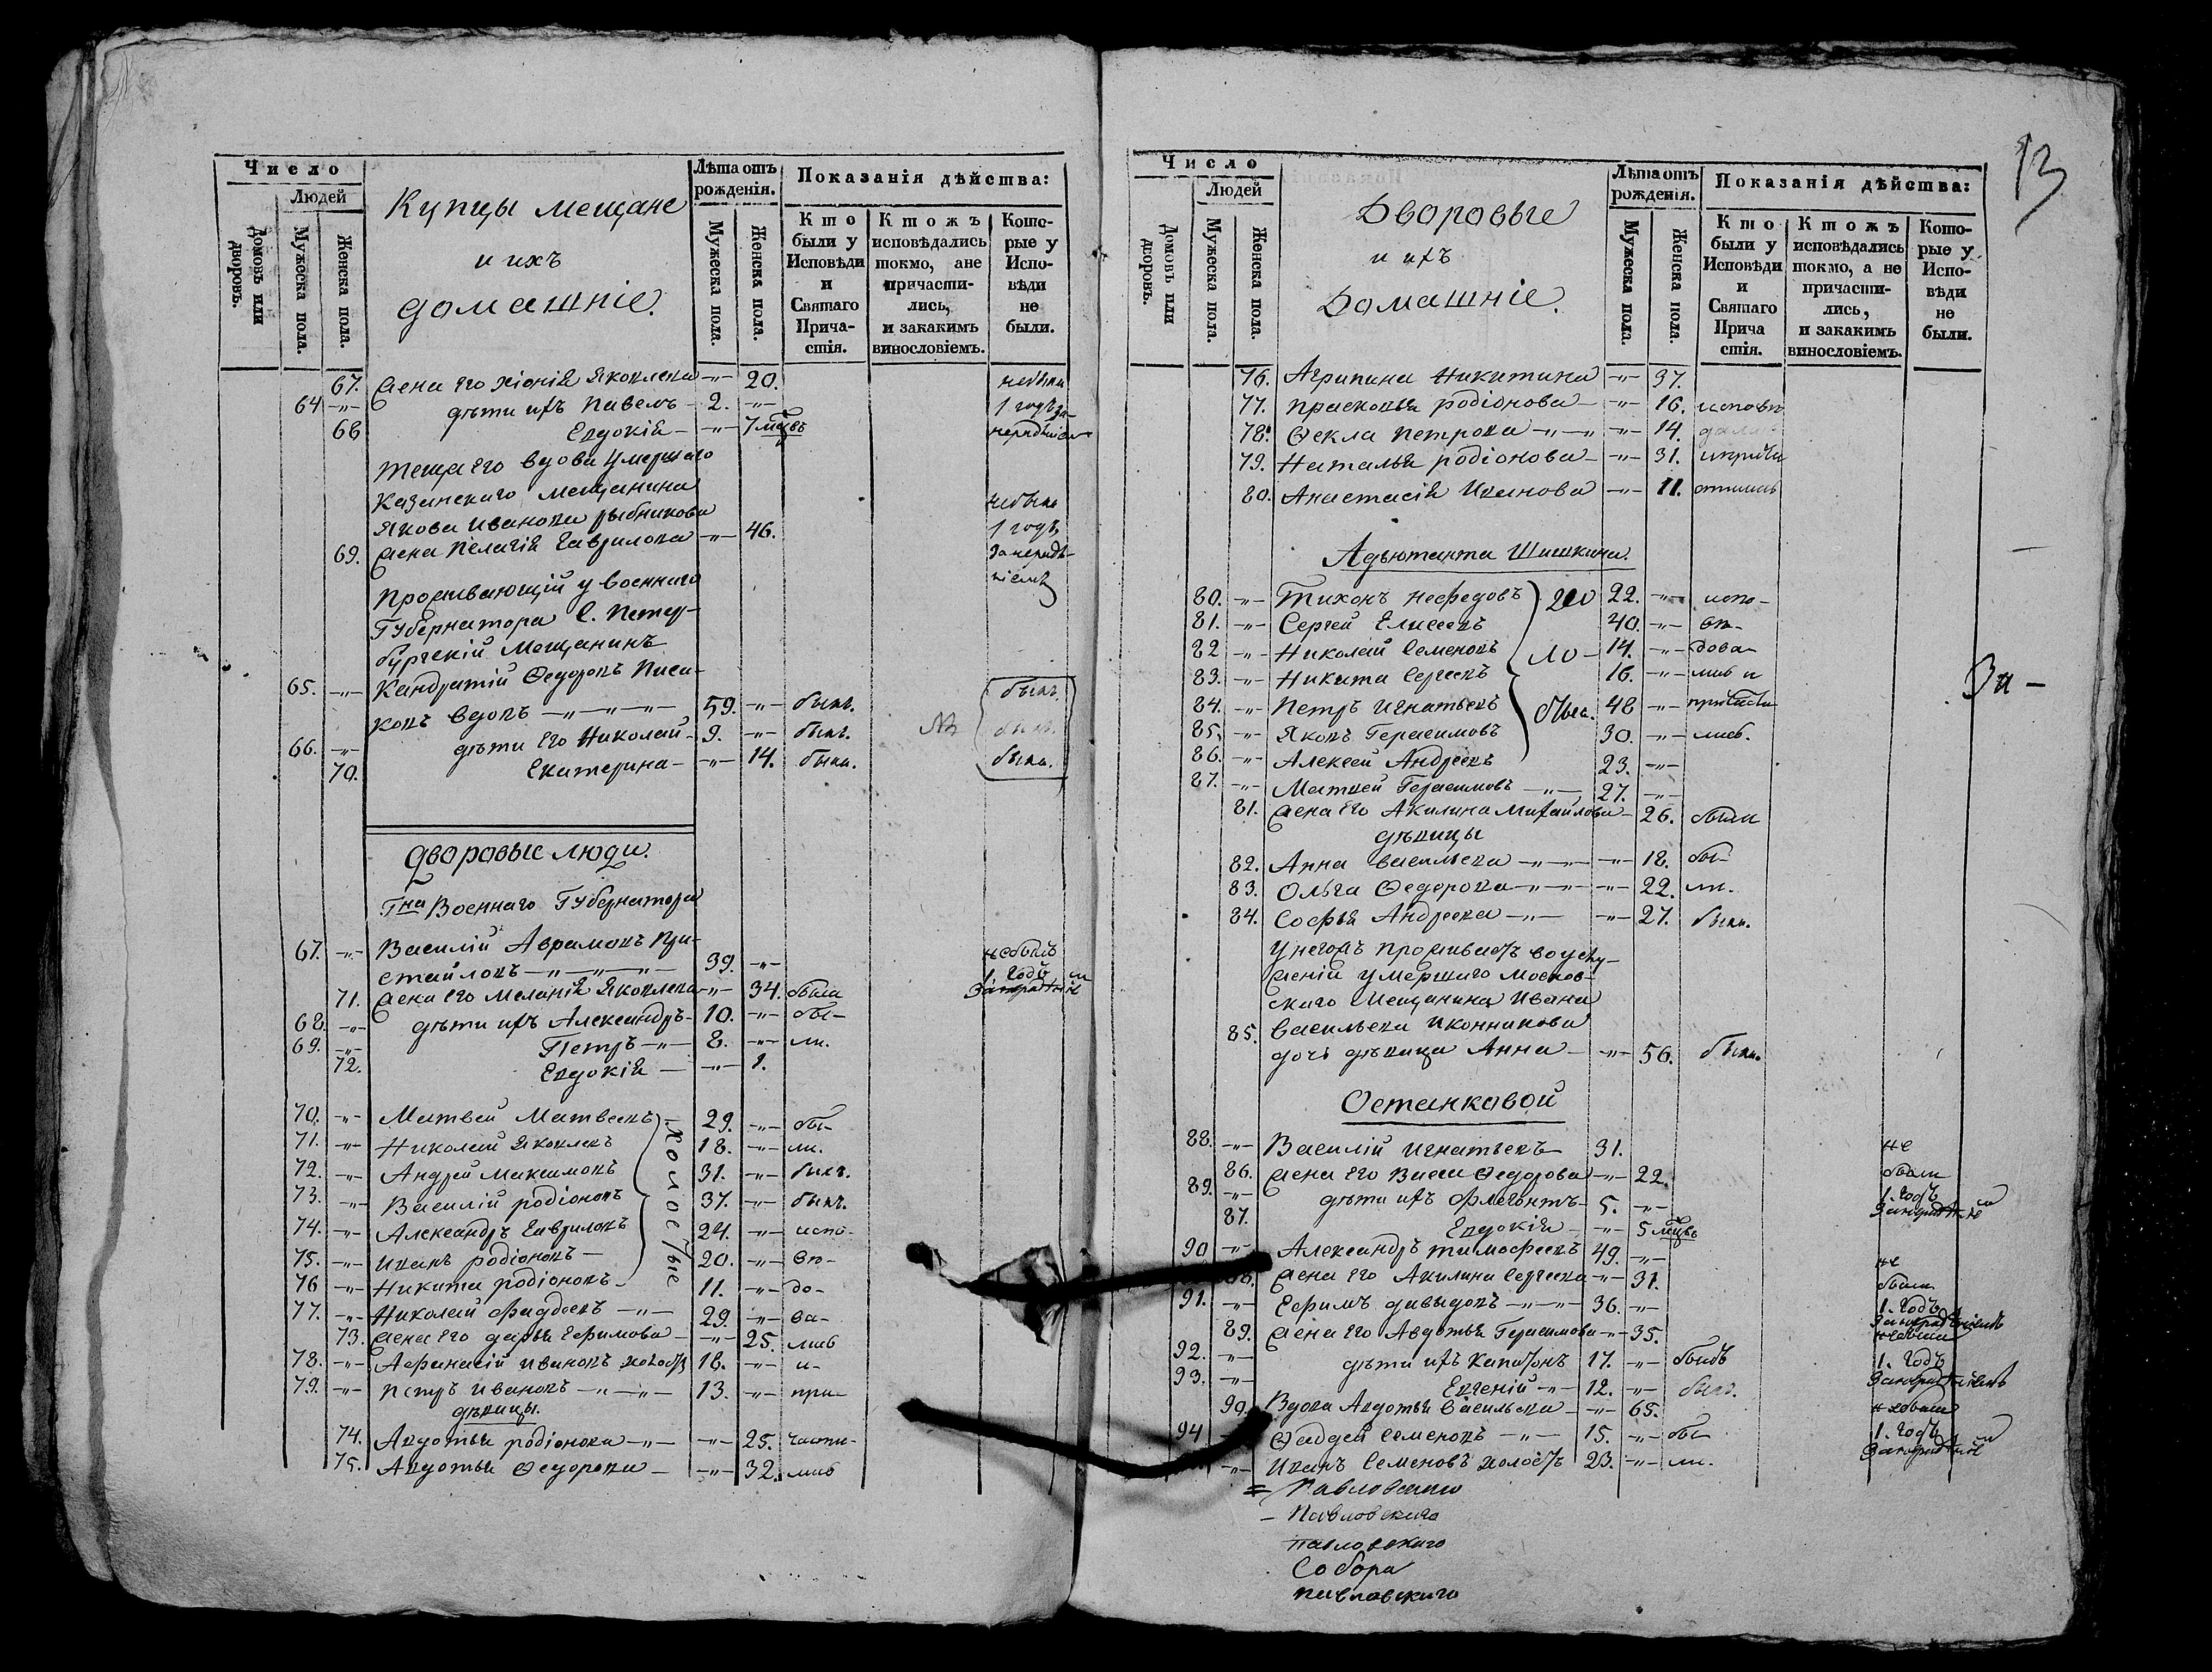 Число
Людей
Домовъ или дворовъ.
Мужеска пола.
Женска пола.
Купцы мещане
и ихъ
домашніе.
Лѣта отъ рожденія.
Мужеска пола.
Женска пола.
Показанія дѣйства:
Кто были у Исповѣди и Святаго Причастія.
Ктожъ исповѣдались токмо, а не причастились, и за какимъ винословіемъ.
Которые у Исповѣди не были.
67. Жена его Хіонія Яковлева -"- 20. небыла
64 -"- дѣти ихъ Павелъ - 2. -"- 1 годъ за
68 Евдокія - -"- 7 мцвъ нерадѣніем
Теща его вдова умершаго
Казанскаго мещанина небыла
Якова Иванова Рыбникова 1 годъ
69. Жена Пелагія Гаврилова -"- 46. за нерадѣ-
ніемъ
Проживающій у военнаго
Губернатора С. Петер-
бургскій Мещанинъ
65. -"- Кандратій Ѳедоровъ Писа-
ковъ вдовъ -"-"-"- 59. -"- былъ. былъ.
66. -"- дѣти его Николай - 9. -"- былъ. былъ.
70. Екатерина - -"- 14. была. была.
Дворовые люди.
Гна Военнаго Губернатора
67. -"- Василій Аврамовъ При-
стайловъ -"-"-"- 39. -"- небылъ 1. годъ
71. Жена его Меланія Яковлева -"- 34. была
68. -"- дѣти ихъ Александръ - 10. -"- бы-
69. -"- Петръ -"- 8. -"- ли.
72. Евдокія - -"- 1.
70. -"- Матвей Матвеевъ 29. -"- бы-
71. -"- Николай Яковлевъ 18. -"- ли.
72. -"- Андрей Максимовъ 31. -"- былъ.
73. -"- Василій Родіоновъ 37. -"- былъ.
74. -"- Александръ Гавриловъ 24. -"- испо-
75. -"- Иванъ Родіоновъ - 20. -"- вѣ-
76 -"- Никита Родіоновъ - 11. -"- до-
Холостые
77. -"- Николай Фадѣевъ -"- 29. -"- ва-
73. Жена его Дарья Ефимова - -"- 25. лис
78. -"- Афанасій Ивановъ холостъ 18. -"- и-
79. -"- Петръ Ивановъ -"-"- 13. -"- при-
дѣвицы.
74. Авдотья Родіонова -"- -"- 25. части-
75. Авдотья Ѳедорова - -"- 32. лис
13
Число
Людей
Домовъ или дворовъ.
Мужеска пола.
Женска пола.
Дворовые
и ихъ
Домашніе.
Лѣта отъ рожденія.
Мужеска пола.
Женска пола.
Показанія дѣйства:
Кто были у Исповѣди и Святаго Причастія.
Ктожъ исповѣдались токмо, а не причастились, и за какимъ винословіемъ.
Которые у Исповѣди не были.
76. Агрипина Никитина -"- 37.
77. Прасковья Родіонова - -"- 16. исповѣ
78. Ѳекла Петрова -"-"- -"- 14.
79. Наталья Родіонова - -"- 31. ипричи
80. Анастасія Иванова -"- 11.
Адъютанта Шишкина.
80. -"- Тихонъ Нефедовъ 22. -"- испо-
81. -"- Сергей Елисеевъ 40. -"- вѣ-
82 -"- Николай Семеновъ 14. -"- дова-
83. -"- Никита Сергеевъ 16. -"- лис и
84. -"- Петръ Игнатьевъ 48 -"- причасти
85. -"- Яковъ Герасимовъ 30. -"- лис.
86. -"- Алексей Андреевъ 23. -"-
87. -"- Матвей Герасимовъ -"- 27. -"-
81. Жена его Акилина Михайлова - 26. были
дѣвицы
82. Анна Васильева -"-"- -"- 18. бы-
83. Ольга Ѳедорова -"-"- -"- 22. ли.
84. Софья Андреева -"- -"- 27. была.
У негожъ проживаетъ во услу-
женіи умершаго Москов-
скаго Мещанина Ивана
85. Васильева Иконникова
дочь дѣвица Анна - -"- 56. была.
За -
Останковой
88. -"- Василій Игнатьевъ - 31. не
86. Жена его Васса Ѳедорова -"- 22. были
89. -"- дѣти ихъ Флегонтъ - 5. -"- 1. годъ
87. Евдокія - -"- 5 мцвъ
90 -"- Александръ Тимофеевъ 49. -"- не
88. Жена его Акилина Сергеева -"- 31. были
91. -"- Ефимъ Давыдовъ -"-"- 36. -"- 1. годъ
89. Жена его Авдотья Герасимова -"- 35. небыли
92. -"- дѣти ихъ Капитонъ 17. -"- былъ 1. годъ
93. -"- Евгеній -"- 12. -"- былъ.
90. Вдова Авдотья Васильева -"- 65. небыла
94 Ѳадей Семеновъ -"- 15. -"- бы- 1. годъ
-"- Иванъ Семеновъ холостъ 23. -"- ли.
= Павловскаго
- Павловскаго
Павловскаго
Собора
Павловскаго